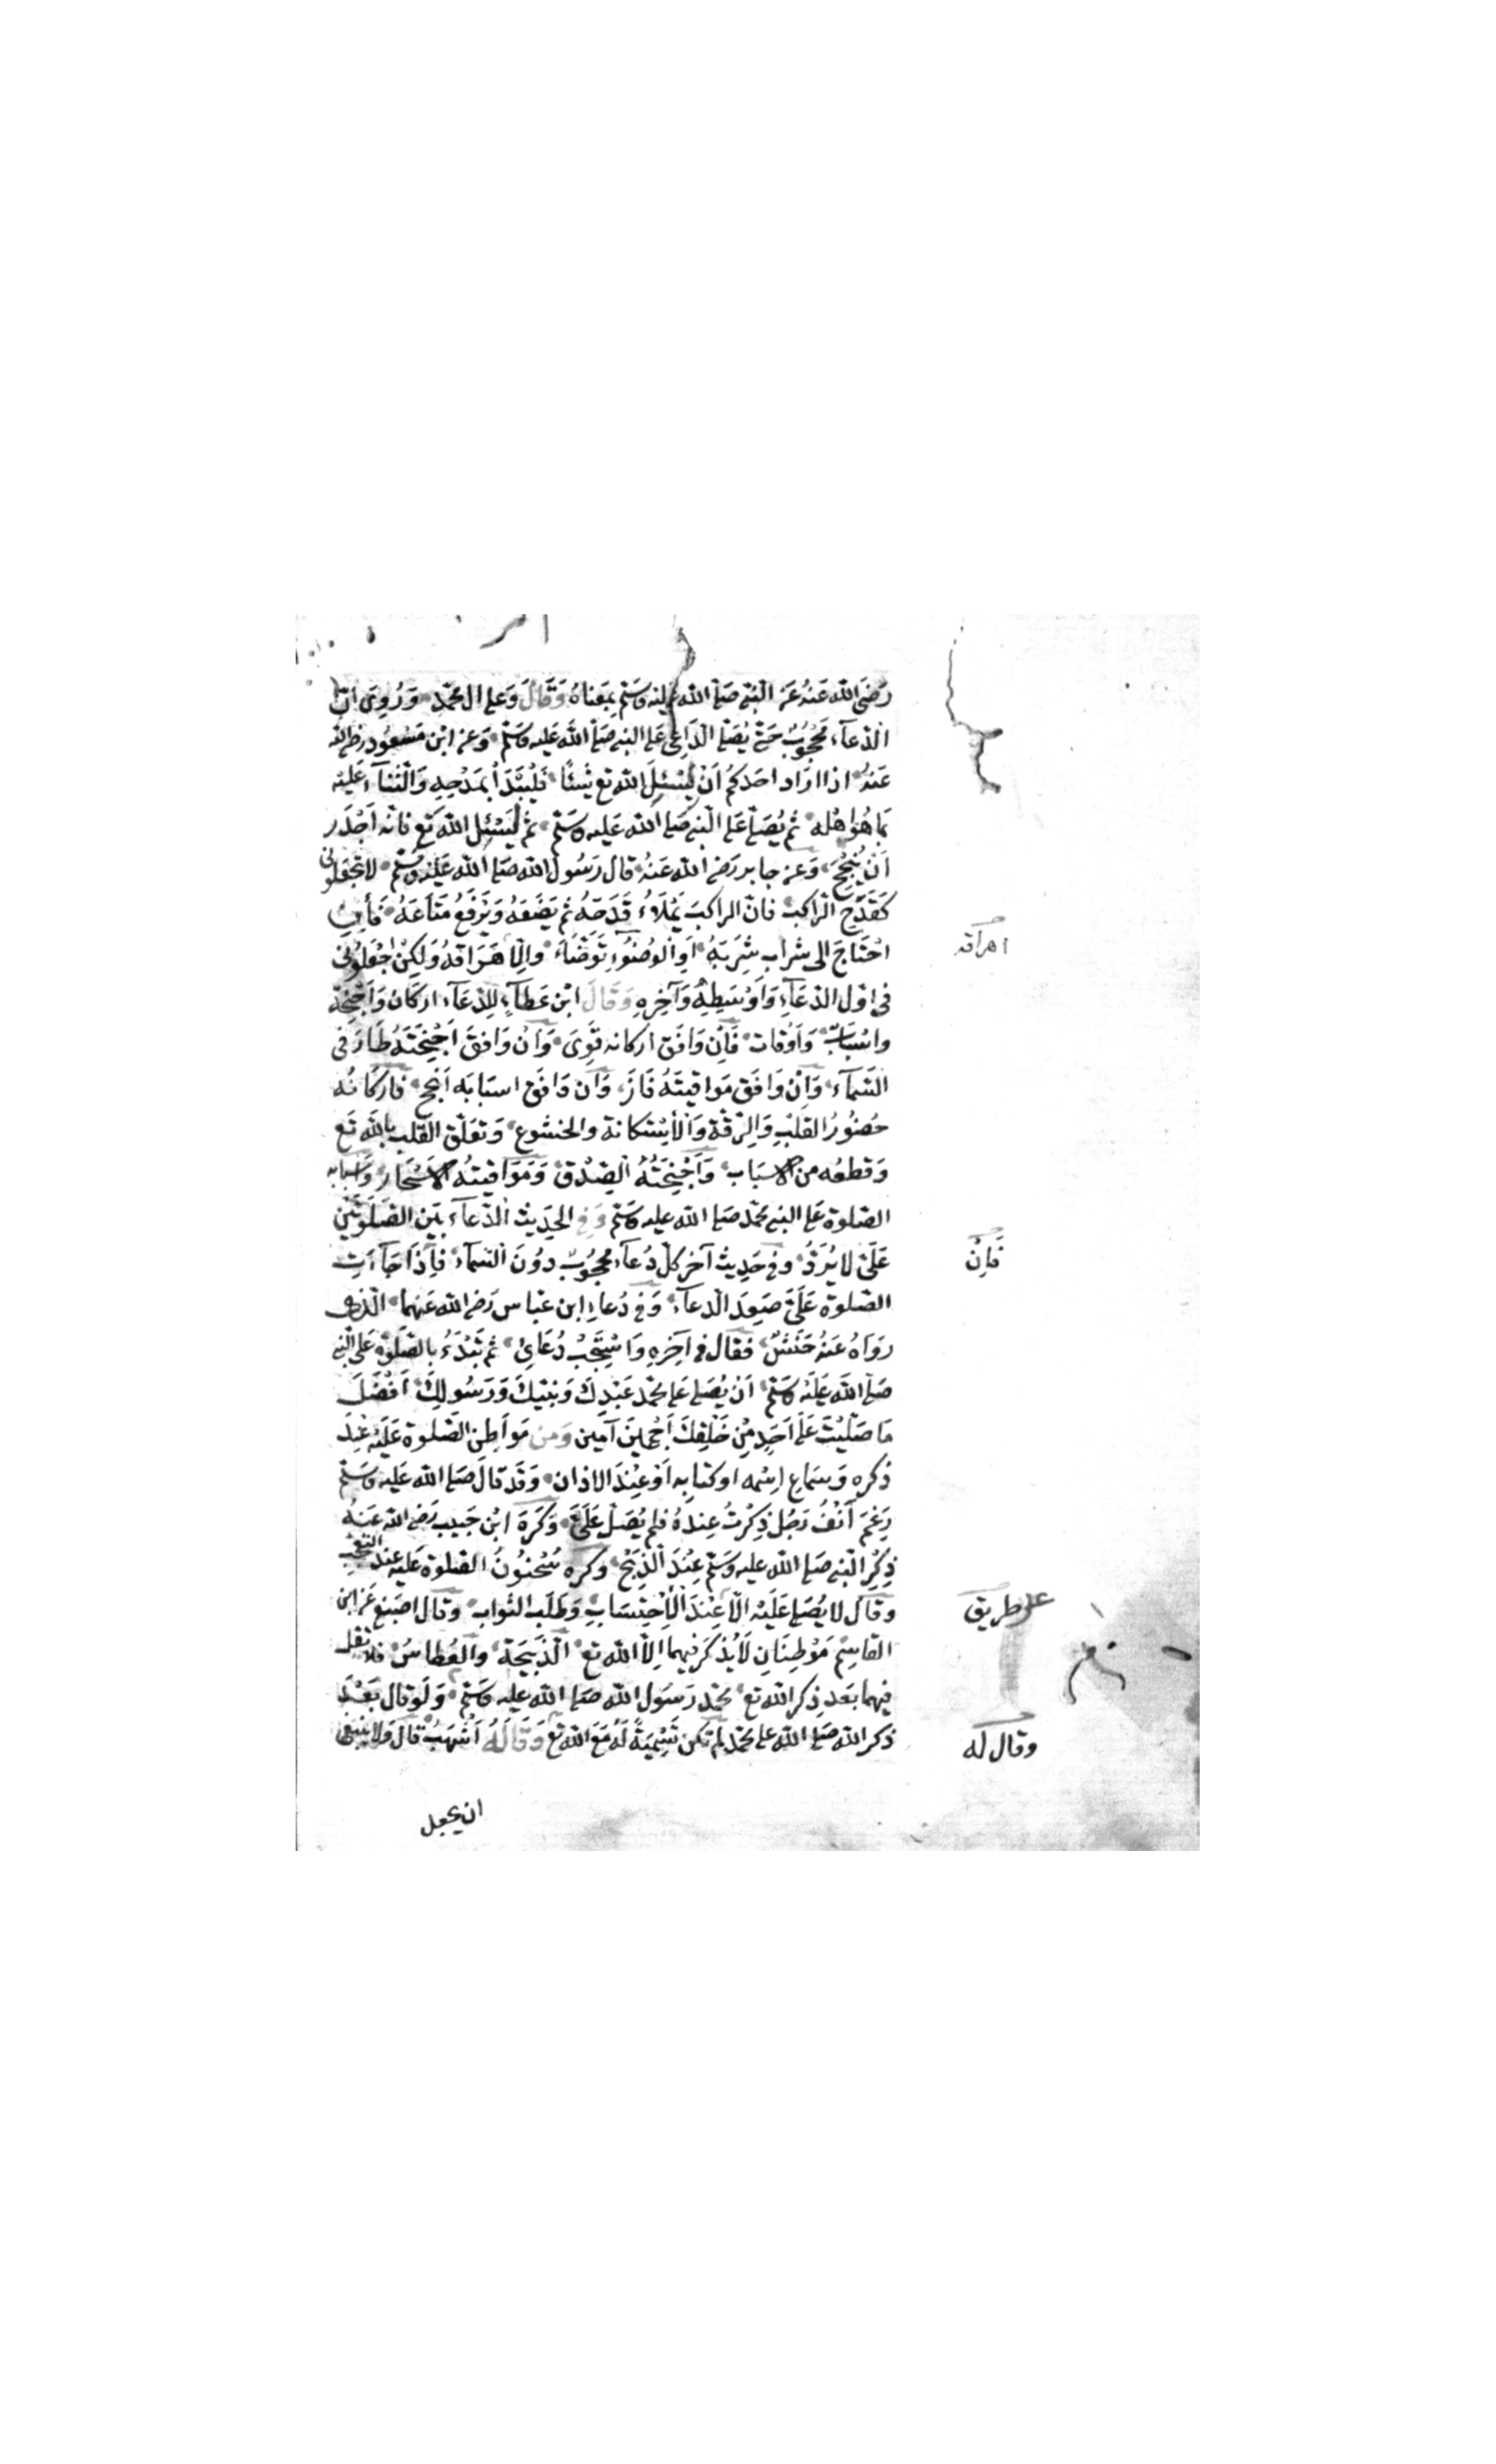 رَضِيَ الله عَنهُ عَنِ النَّبِيِّ صَلَّى الله عَلَيْه وَسَلَّم بِمَعناهُ وَقَالَ وَعَلى ال محمّدٍ وَرُوِىَ انّ
الدّعآءَ محجُوبٌ حَتّٰى يُصَلّى الدَّاعِى عَلَى النبىِ صَلّى الله عَليه وَسَلّم وَعنِ ابْن مَسْعُود رضى الله
عَنهُ اذا ارَاد احَدكُم اَنْ يَسْئِلَ الله تع شَيئًا فَليُبْدَأ بمَدْحِهِ وَالثّنَآءِ عَلَيْه
بمَا هُوَ اهْله ثم يُصَلّى عَلى النّبى صَلى الله عَليه وَسَلّم ثم ليَسْئل الله تع فانّه اَجْدَر
اَنْ يُنْجِحَ وَعن جابر رَضى الله عَنهُ قال رَسُول الله صَلى الله عَليْه وَسَلّم لا تجعَلونى
كَقَدَحِ الرّاكبِ فانّ الراكبَ يَمْلَاءُ قَدَحَهُ ثم يَضَعَهُ وَيَرْفَعُ مَتَاعَهُ فَأِنِ
احْتَاجَ الى شرابٍ شَرِبَهُ اَوِ الوُضُوُءِ تَوَضّأءَ وَاِلّا هَرَاقهُ وَلكِنْ اجْعَلُونى
فى اوّل الدّعَآءِ وَاَوْسَطِهِ وَآخِرِهِ وَقَالَ ابْن عَطآءٍ لِلدّعَآءِ اركَان وَاَجْنِحَة
واسْبَابٌ وَاَوْقات فَاِن وَافَق اركانه قَوِىَ وَاِنْ وَافقَ اَجْنِحَتَهُ طَارَ فى
السَّمآءِ وَاِنْ وَافَق مَواقِيتَهُ فَازَ وَان وَافَق اسبَابَه اَنْجَح فاركَانُه
حُضُورُ القلْبِ وَالِرِقّة وَالأِسْتكَانة والخشوع وَتعلّق القَلبِ بالله تع
وَقطعُه من الاسبَاب وَاَجْنِحَتُهُ الصِدْق وَمَوَاقيتُه الاَسْحَار وَاَسبابه
الصّلوة عَلى النبى محمّد صَلى الله عليه وَسَلّم وَفى الحَدِيث الدّعآء بَيْن الصّلَوتَيْن
عَلَىّ لا يُرَدُّ وفى حَدِيث آخر كلّ دُعآءٍ محجُوبٌ دوُنَ السّمآءِ فاِذَا جَآءَتِ
الصّلوة عَلَىَّ صَعِدَ الدعآءُ وَفى دُعاءِ ابن عبّاس رَضى الله عَنهما الّذى
رَوَاهُ عَنهُ حَنَشٌ فقال فى آخِرِهِ وَاسْتَجِبْ دُعَائى ثم تَبْدَءُ بالصّلوة عَلى النّبى
صَلّى الله عَلَيْه وَسَلّم اَنْ يُصَلى عَلى محمّد عَبْدِكَ وَنبيّكَ وَرَسُولِكَ اَفضَلَ
مَا صَلّيْتَ عَلى اَحَدٍ مِن خَلْقِكَ اَجْمَعِينَ آمين وَمن مَوَاطِن الصّلوة عَلَيْهِ عِندَ
ذكره وَسمَاعِ اسْمه او كتابِه اَوْ عِنْدَ الاذان وَقَد قالَ صَلى الله عَليه وَسَلّم
رَغِمَ اَنْفُ رَجُلٍ ذُكِرْتُ عِندهُ فلم يُصَلّ عَلَىَّ وَكَرِهَ ابْن حَبيب رَضى الله عَنهُ
ذِكْر النّبى صَلى الله عليه وَسَلّم عِنْدَ الذِبْحِ وكره سُحْنونُ الصّلوة عَليه عند التّعجّب
وَقالَ لا يُصَلى عَلَيْهِ الّا عِنْدَ الأِحْتِسَابِ وَطَلَب الثوابِ وَقال اصبَغ عَن ابن
القاسِمْ مَوْطِنَانِ لَا يُذكَر فيهما الّا الله تع الذّبيحَة وَالعُطاسُ فلا تقل
فيهما بَعد ذِكر الله تع محمّد رَسُول الله صَلى الله عليه وَسَلّم وَلَو قال بَعْدَ
ذكر الله صَلى الله على محمّد لم تكن تَسْمِيَةً لَهُ مَعَ الله تع وَقَالَهُ اَشْهَبُ قال وَلا ينبغى
ان يجعل
اهراقه
فَاِنْ
على طريق
وقال له